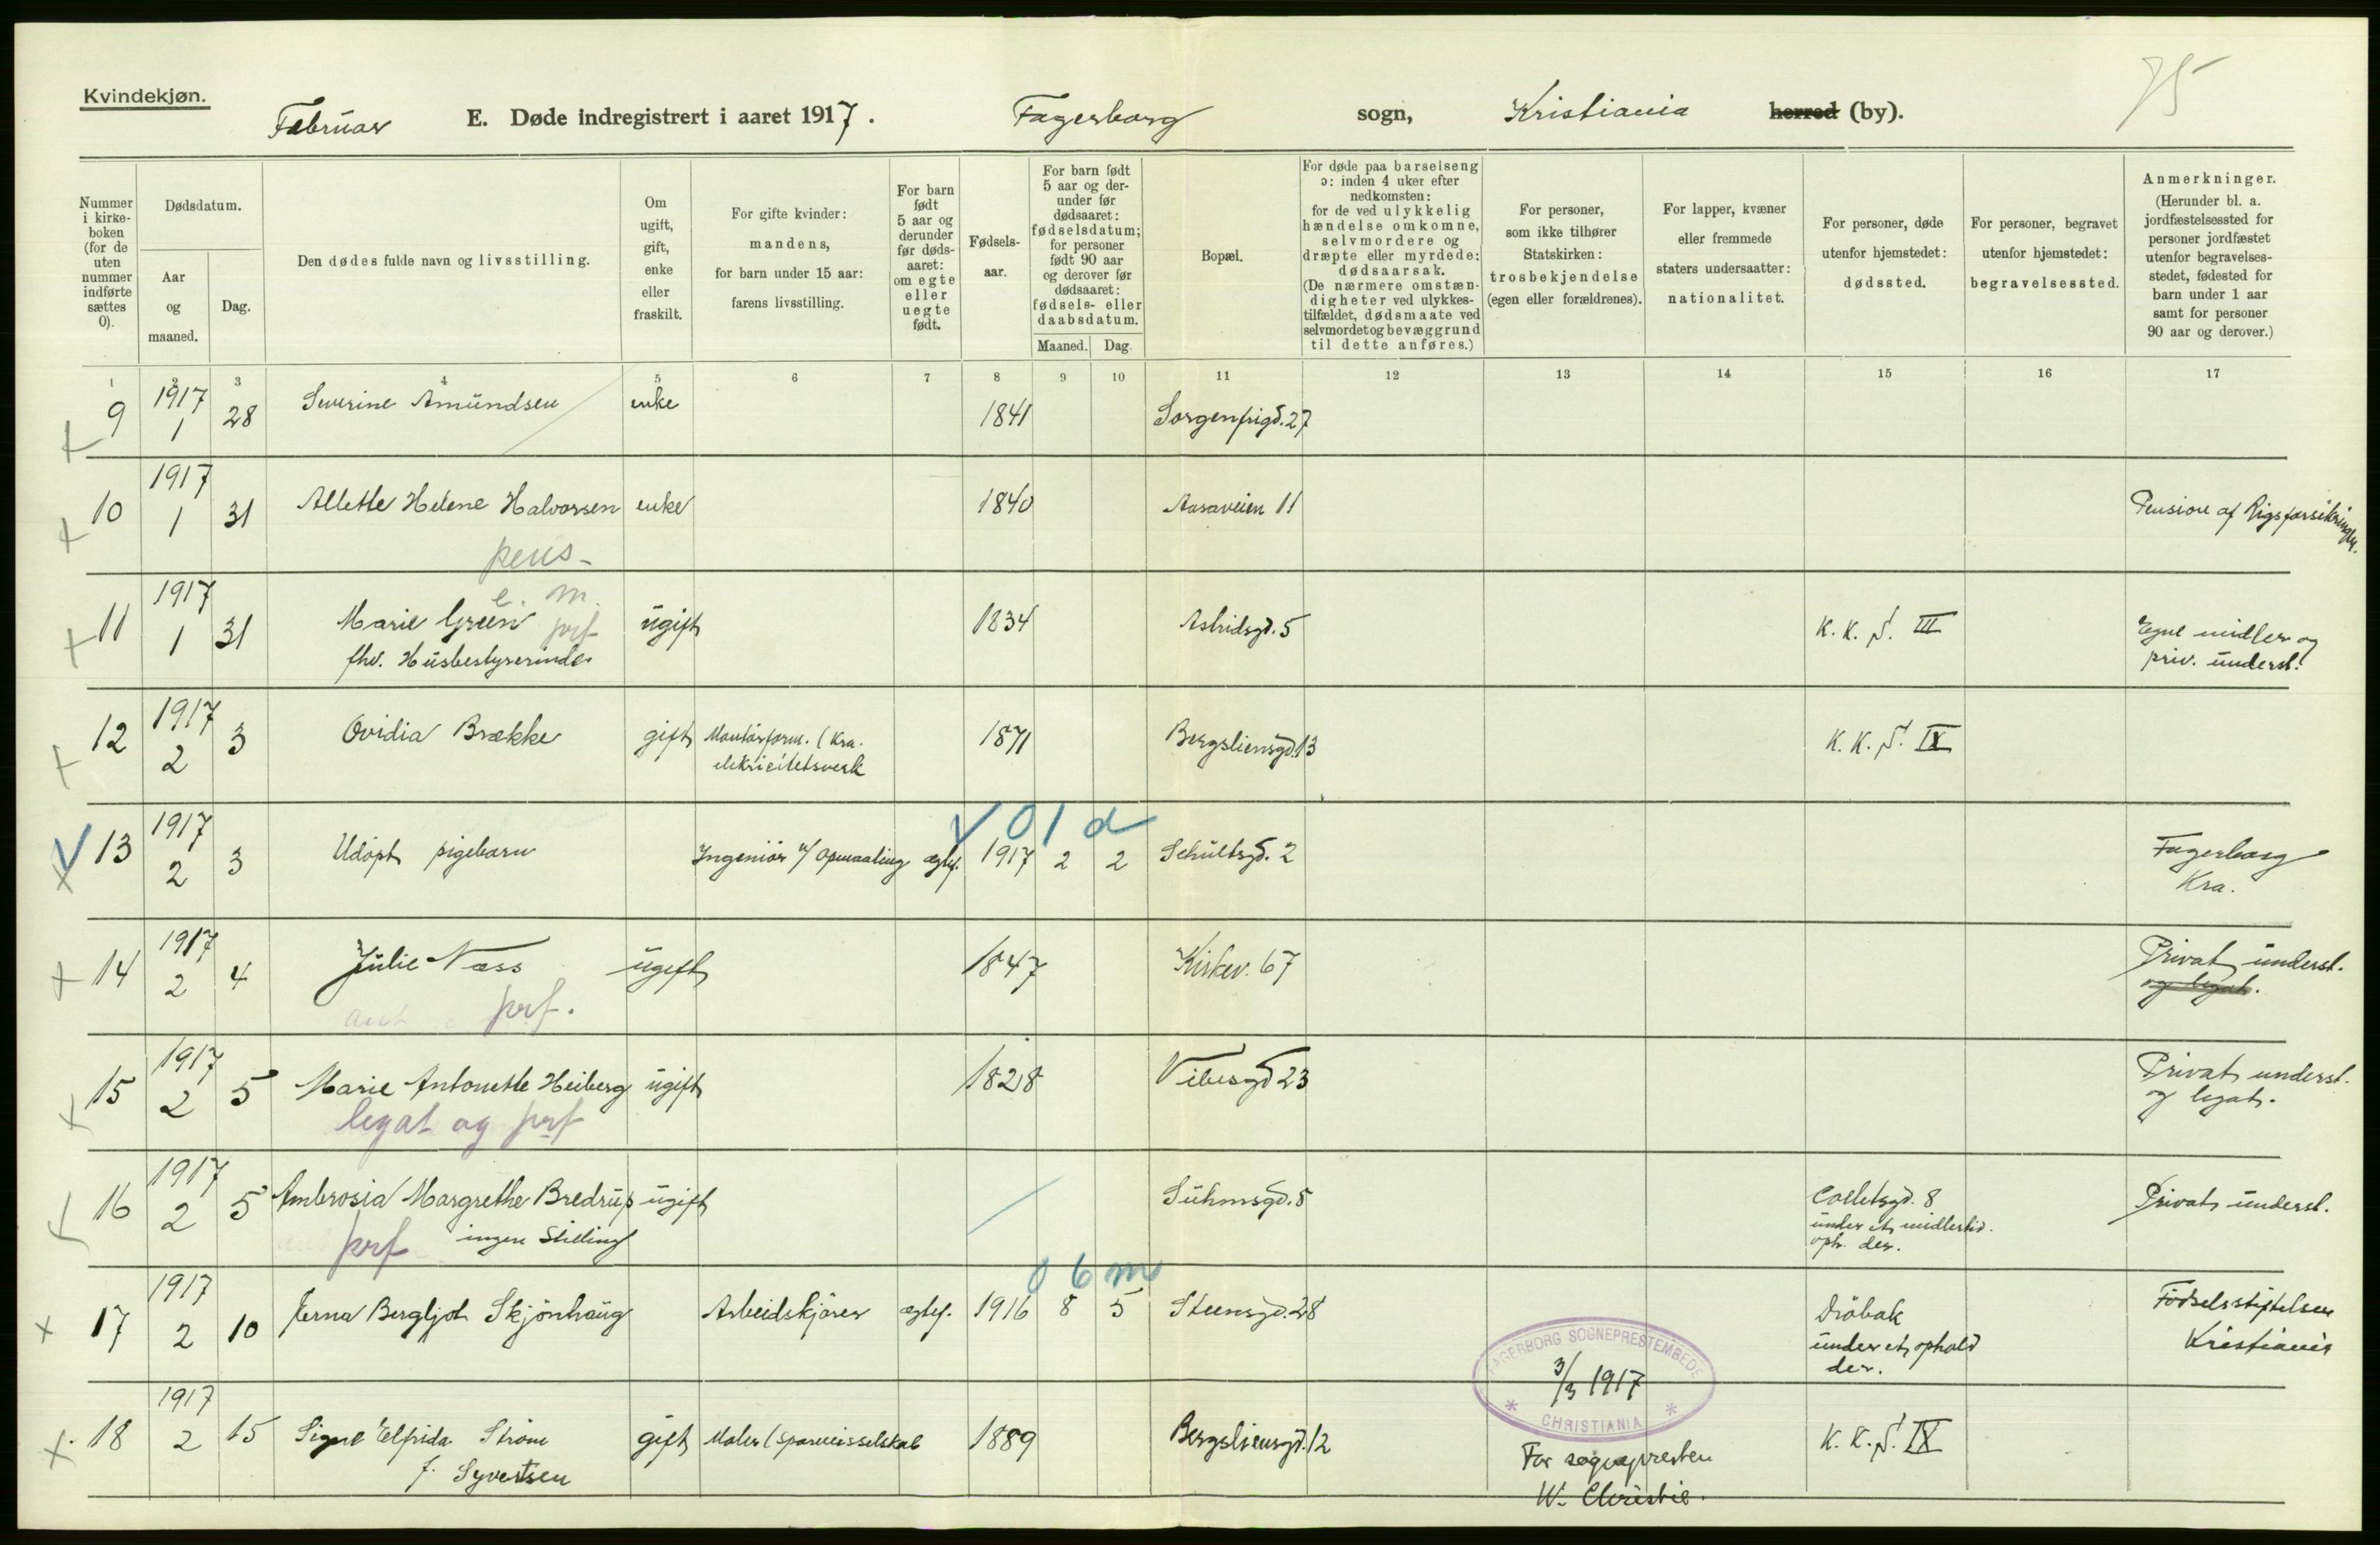 Kvindekjøn.
75
Februar E. Døde indregistrert i aaret 1917. Fagerborg sogn, Kristiania herred (by).
Nummer i kirke-boken (for de uten nummer indførte sættes 0).
Dødsdatum.
Aar og maaned.
Dag.
Den dødes fulde navn og livsstilling.
Om ugift, gift, enke eller fraskilt.
For gifte kvinder: mandens, for barn under 15 aar: farens livsstilling.
For barn født 5 aar og derunder før døds-aaret: om egte eller uegte født.
Fødsels-aar.
For barn født 5 aar og der-under før dødsaaret: fødselsdatum; for personer født 90 aar og derover før dødsaaret: fødsels- eller daabsdatum.
Maaned. Dag.
Bopæl.
For døde paa barselseng ɔ: inden 4 uker efter nedkomsten: for de ved ulykkelig hændelse omkomne, selvmordere og dræpte eller myrdede: dødsaarsak. (De nærmere omstæn-digheter ved ulykkes-tilfældet, dødsmaate ved selvmord et og bevæggrund til dette anføres.)
For personer, som ikke tilhører Statskirken: trosbekjendelse (egen eller forældrenes).
For lapper, kvæner eller fremmede staters undersaatter: nationalitet.
For personer, døde utenfor hjemstedet: dødssted.
For personer, begravet utenfor hjemstedet: begravelsessted.
Anmerkninger. (Herunder bl. a. jordfæstelsessted for personer jordfæstet utenfor begravelses-stedet, fødested for barn under 1 aar samt for personer 90 aar og derover.)
1 2 3 4 5 6 7 8 9 10 11 12 13 14 15 16 17
9 1917 1 28 Severine Amundsen enke 1841 Sorgenfrigd. 27
10 1917 1 31 Allette Helene Halvorsen enke 1840 Aasaveien 11 Pension af Rigsforsikringen.
pens-
e. m.
11 1917 1 31 Marie Green prf ugift 1834 Astridsgd. 5 K. K. S. III Egne midler og
fhv. Husbestyrerinde priv. underst.
12 1917 2 3 Ovidia Brække gift Montörform. (Kra. 1871 Bergsliensgd. 13 K. K. S. IX
elektricitetsverk
0 1 d
13 1917 2 3 Udöpt pigebarn Ingeniör v/ Opmaaling egtef. 1917 2 2 Schultsgd. 2 Fagerborg
Kra.
14 1917 2 4 Julie Næss ugift 1847 Kirkev. 67 Privat underst.
prf. og legat.
15 1917 2 5 Marie Antonette Heiberg ugift 1828 Vibesgd 23 Privat underst.
legat og prf og legat.
16 1917 2 5 Ambrosia Margrethe Bredrup ugift Suhmsgd. 5 Colletsgd. 8 Privat underst.
prf ingen Stilling under et midlertid.
oph. der.
0 6 m
17 1917 2 10 Jerna Bergljot Skjönhaug Arbeidskjörer egtef. 1916 8 5 Steensgd. 28 Dröbak Födselsstiftelsen
under et ophold Kristiania
der.
FAGERBORG SOGNEPRESTEMBEDE
3/3 1917
CHRISTIANIA
18 1917 2 15 Signe Elfrida Ström gift Maler (Sporveisselskab 1889 Bergsliensgd. 12 K. K. S. IX
f. Syvertsen
For sognepresten
W. Christie.